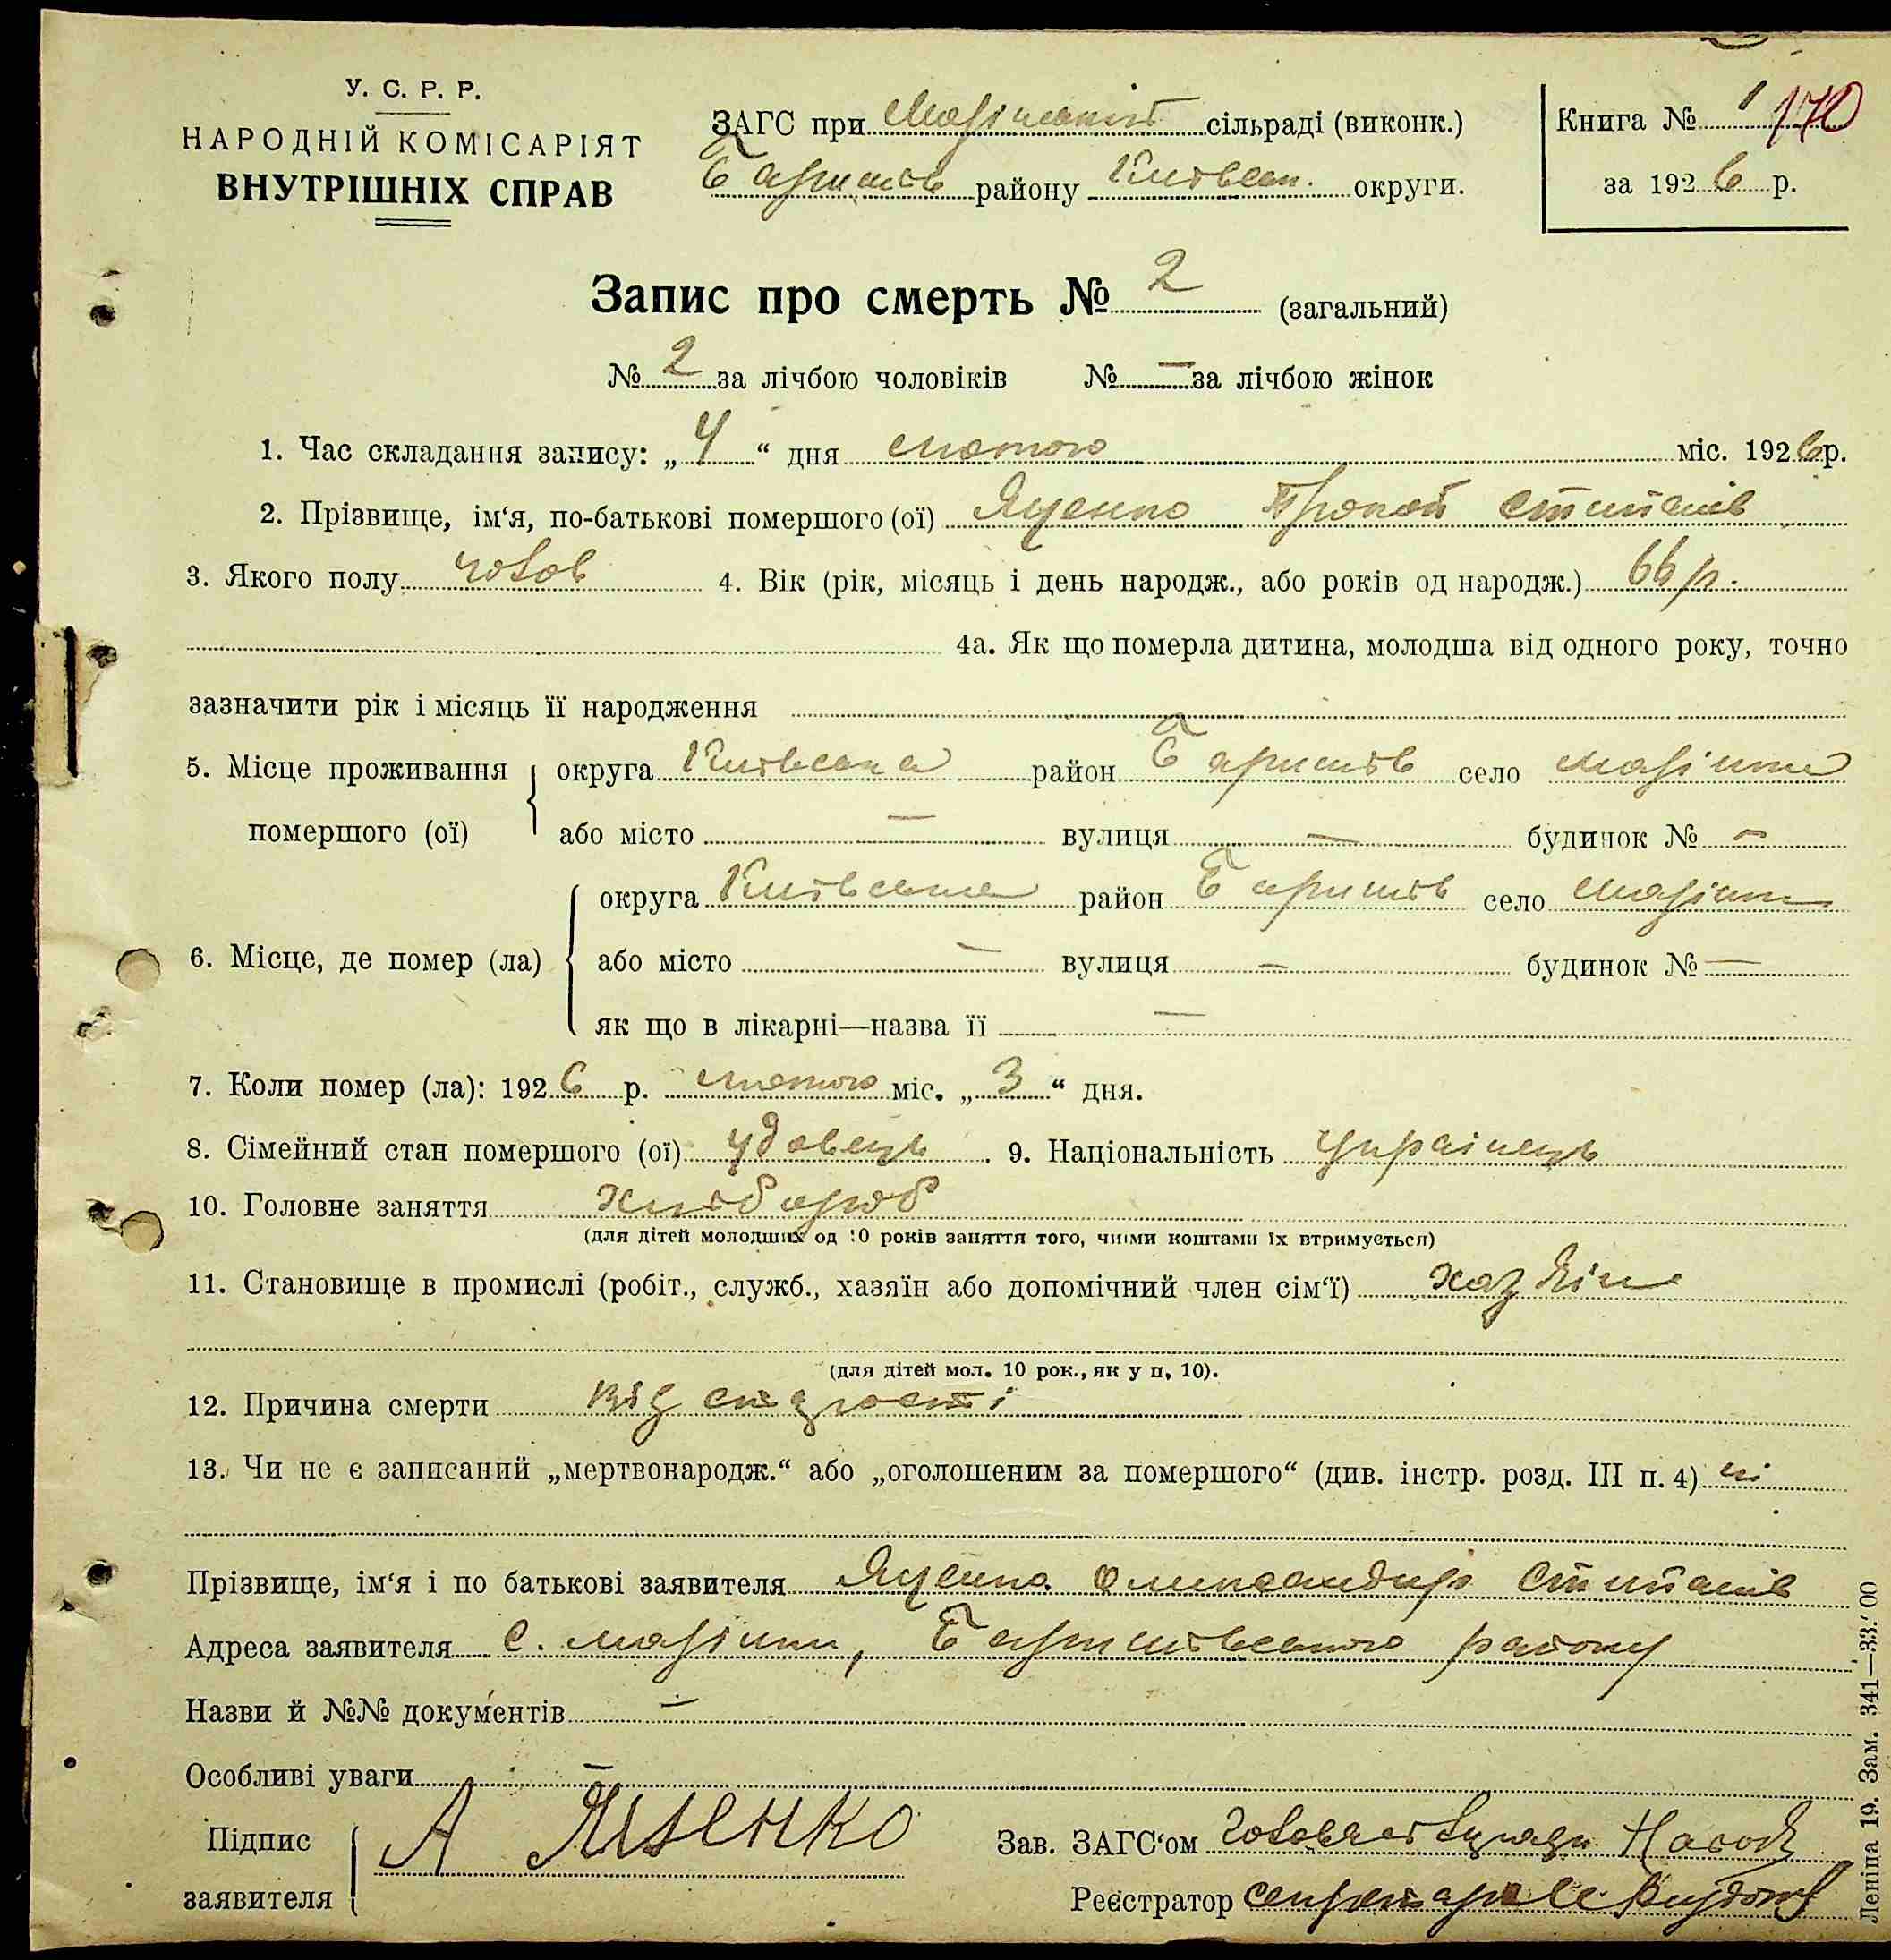 У. С. Р. Р.
НАРОДНІЙ КОМІСАРІЯТ
ВНУТРІШНІХ СПРАВ
ЗАГС при сільраді (виконк.)
Баришів району Київськ. округи.
Книга № 1 170
за 1926 р.
Запис про смерть № 2 (загальний)
№ 2 за лічбою чоловіків № — за лічбою жінок
1. Час складання запису: „4“ дня лютого міс. 1926 р.
2. Прізвище, ім‘я, по-батькові помершого (ої) Яценко Прокоп Степанів
3. Якого полу чолов 4. Вік (рік, місяць і день народж., або років од народж.) 66 р.
4а. Як що померла дитина, молодша від одного року, точно
зазначити рік і місяць її народження
5. Місце проживання помершого (ої) округа Київська район Баришів село
або місто — вулиця — будинок № —
6. Місце, де помер (ла) округа Київська район Баришів село
або місто — вулиця — будинок № —
як що в лікарні—назва її —
7. Коли помер (ла): 1926 р. лютого міс. „3“ дня.
8. Сімейний стан помершого (ої) удовець. 9. Національність Українець
10. Головне заняття хлібороб
(для дітей молодших од 10 років заняття того, чиїми коштами їх втримується)
11. Становище в промислі (робіт., служб., хазяїн або допомічний член сім‘ї) хазяїн
(для дітей мол. 10 рок., як у п. 10).
12. Причина смерти від старості
13. Чи не є записаний „мертвонародж.“ або „оголошеним за помершого“ (див. інстр. розд. III п. 4) ні
Прізвище, ім‘я і по батькові заявителя Яценко Олександир Степанів
Адреса заявителя с. Баришівського району
Назви й №№ документів —
Особливі уваги —
Підпис заявителя А Яценко
Зав. ЗАГС‘ом
Реєстратор секретар
Леніна 19. Зам. 341—33.'00